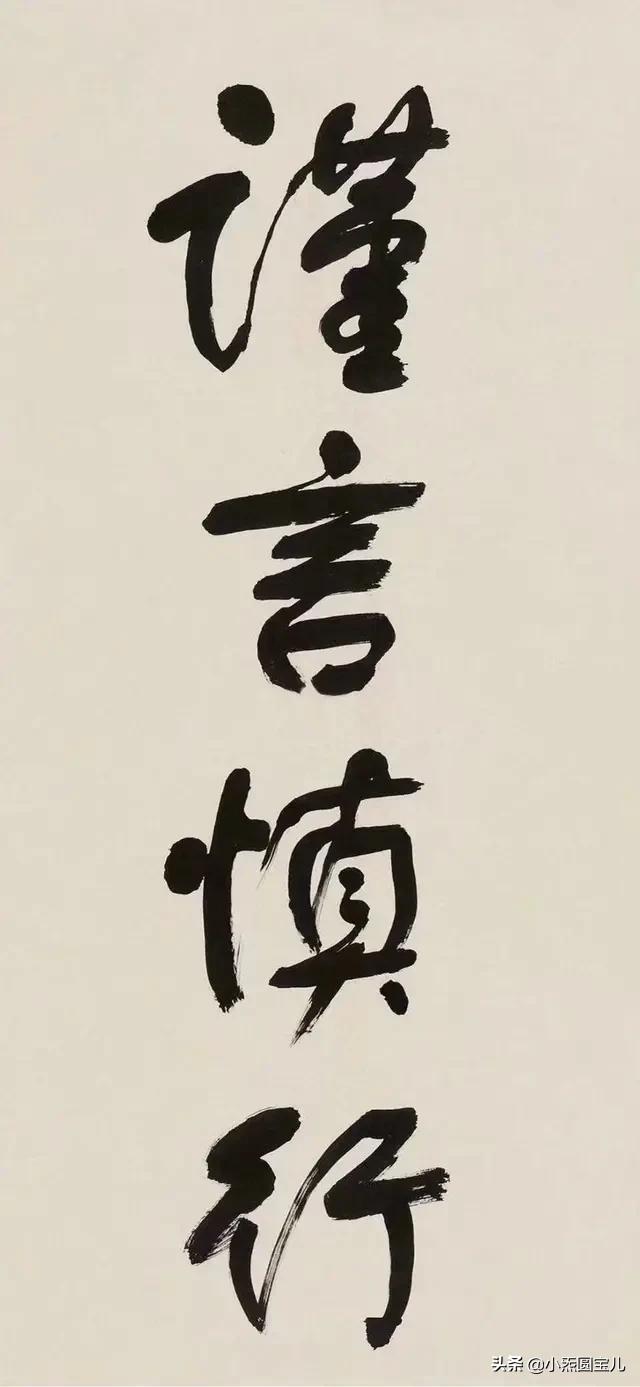 谨言慎行
头条 @小炁圆宝儿